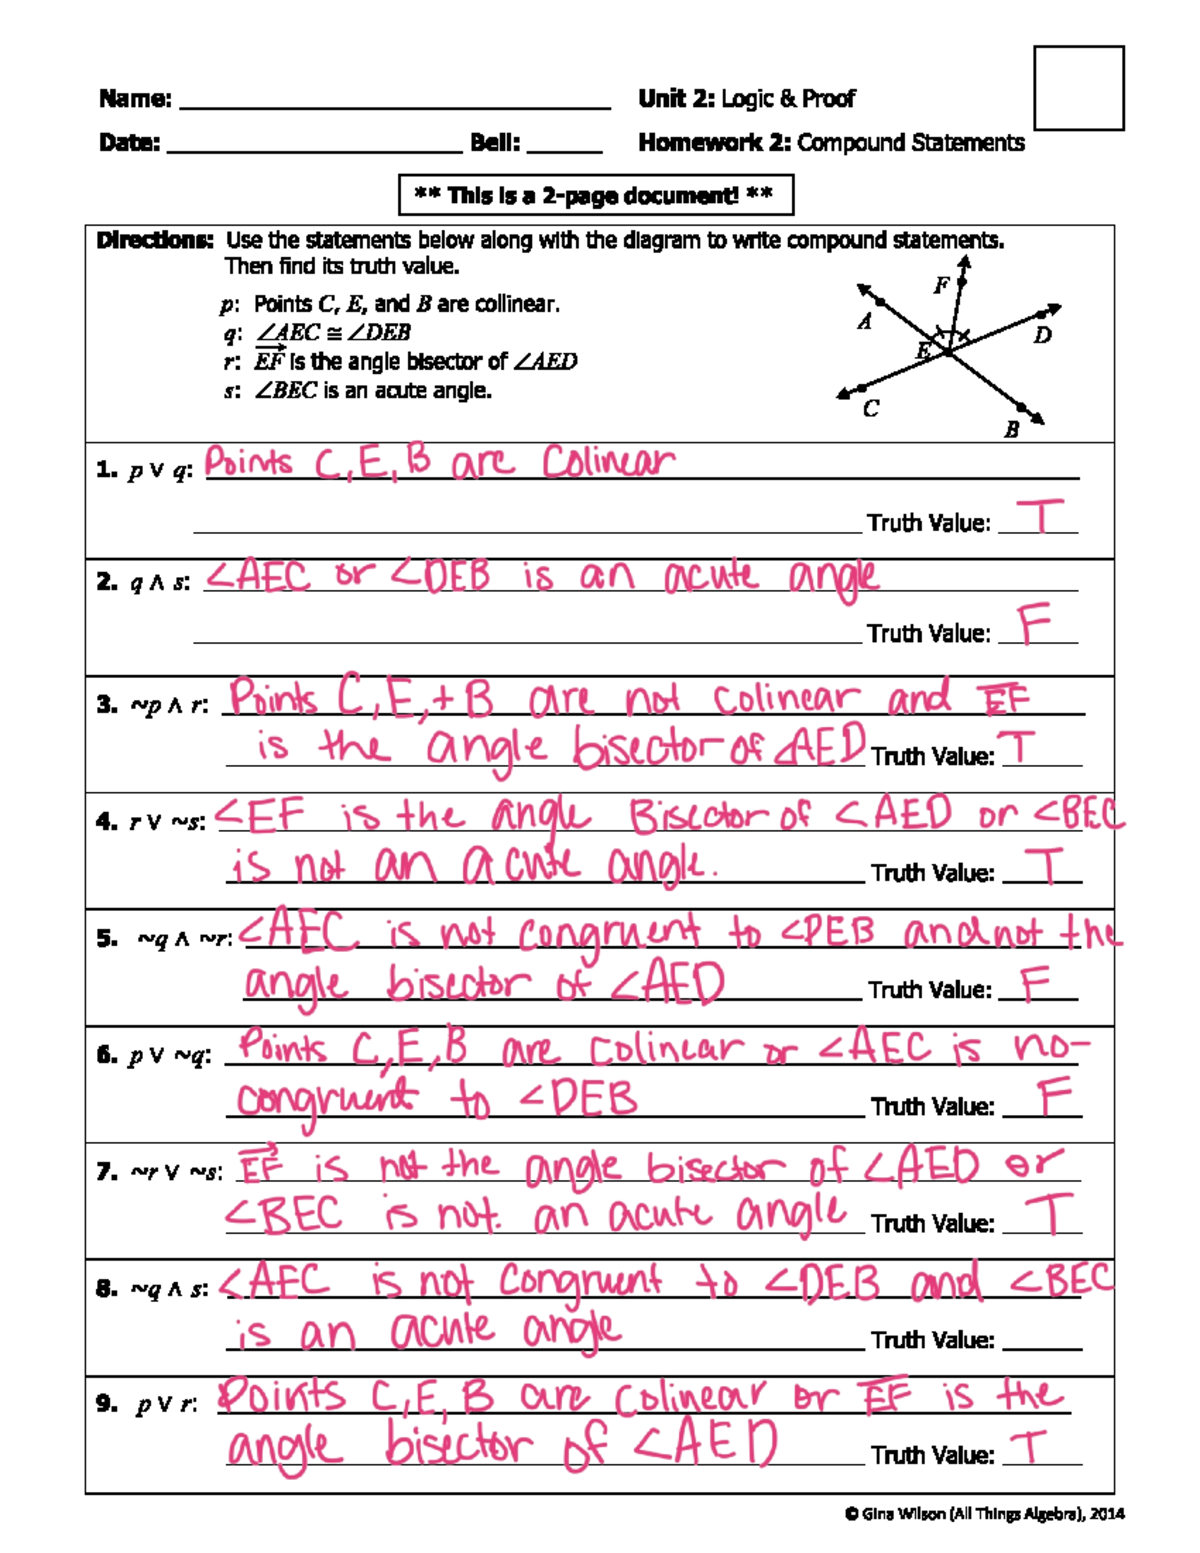 Name: ____ Unit 2: Logic & Proof
Date: ____ Bell: ____ Homework 2: Compound Statements
** This is a 2-page document! **
Directions: Use the statements below along with the diagram to write compound statements.
Then find its truth value.
p: Points C, E, and B are collinear.
q: ∠AEC ≅ ∠DEB
r: EF is the angle bisector of ∠AED
s: ∠BEC is an acute angle.
F
A
D
E
C
B
1. p ∨ q: Points C, E, B are Colinear
Truth Value: T
2. q ∧ s: ∠AEC or ∠DEB is an acute angle
Truth Value: F
3. ~p ∧ r: Points C, E, + B are not colinear and EF
is the angle bisector of ∠AED Truth Value: T
4. r ∨ ~s: ∠EF is the angle Bisector of ∠AED or ∠BEC
is not an acute angle. Truth Value: T
5. ~q ∧ ~r: ∠AEC is not congruent to ∠DEB and not the
angle bisector of ∠AED Truth Value: F
6. p ∨ ~q: Points C, E, B are colinear or ∠AEC is no-
congruent to ∠DEB Truth Value: F
7. ~r ∨ ~s: EF is not the angle bisector of ∠AED or
∠BEC is not. an acute angle Truth Value: T
8. ~q ∧ s: ∠AEC is not congruent to ∠DEB and ∠BEC
is an acute angle Truth Value: ____
9. p ∨ r: Points C, E, B are colinear or EF is the
angle bisector of ∠AED Truth Value: T
© Gina Wilson (All Things Algebra), 2014